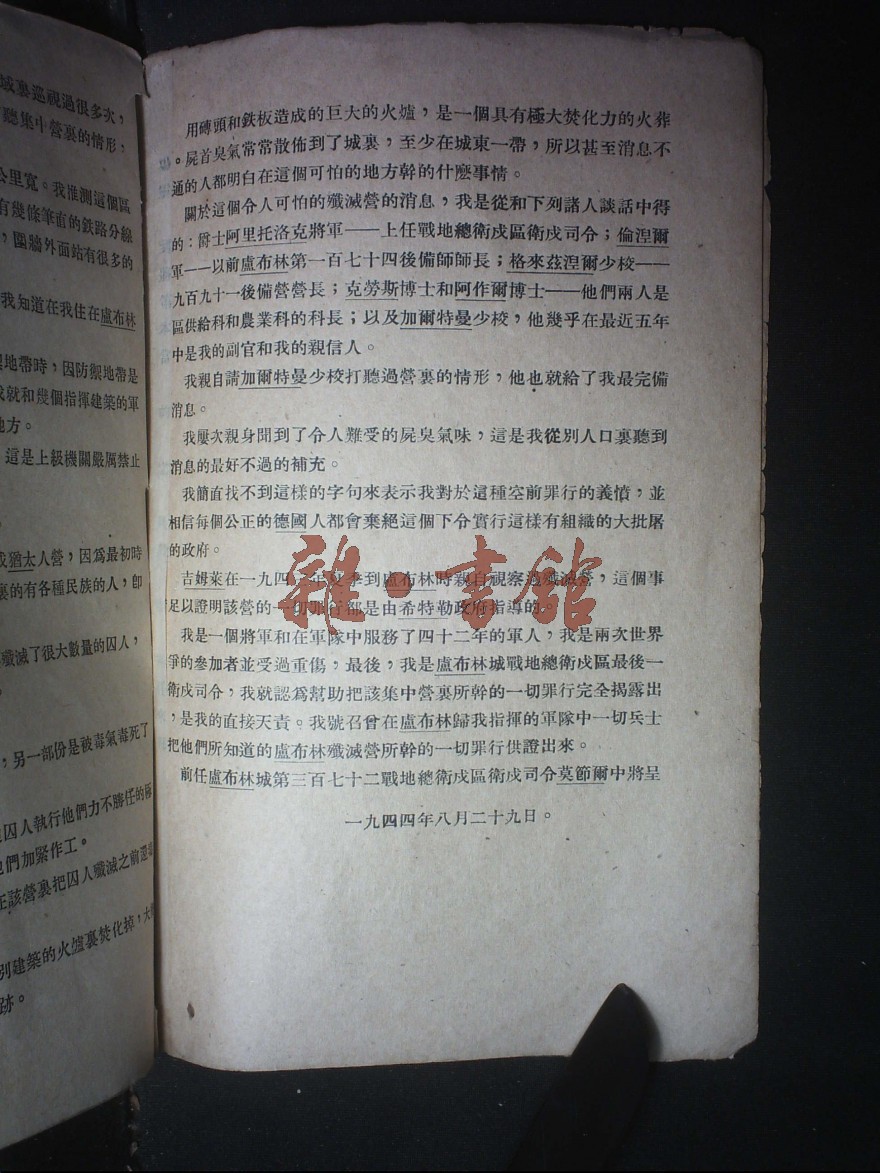 城裏巡視過很多次，
聽集中營裏的情形，
公里寬。我推測這個區
有幾條筆直的鉄路分線
，圍牆外面站有很多的
我知道在我住在盧布林
地帶時，因防禦地帶是
就和幾個指揮建築的軍
地方。
這是上級機關嚴厲禁止
猶太人營，因爲最初時
裏的有各種民族的人，卽
殲滅了很大數量的囚人，
，另一部份是被毒氣毒死了
囚人執行他們力不勝任的
他們加緊作工。
在該營裏把囚人殲滅之前還
別建築的火爐裏焚化掉，大
跡。
用磚頭和鉄板造成的巨大的火爐，是一個具有極大焚化力的火葬
。屍首臭氣常常散佈到了城裏，至少在城東一帶，所以甚至消息不
通的人都明白在這個可怕的地方幹的什麽事情。
關於這個令人可怕的殲滅營的消息，我是從和下列諸人談話中得
的：爵士阿里托洛克將軍——上任戰地總衛戍區衛戍司令；倫涅爾
軍——以前盧布林第一百七十四後備師師長；格來茲涅爾少校——
九百九十一後備營營長；克勞斯博士和阿作爾博士——他們兩人是
區供給科和農業科的科長；以及加爾特曼少校，他幾乎在最近五年
中是我的副官和我的親信人。
我親自請加爾特曼少校打聽過營裏的情形，他也就給了我最完備
消息。
我屢次親身聞到了令人難受的屍臭氣味，這是我從別人口裏聽到
消息的最好不過的補充。
我簡直找不到這樣的字句來表示我對於這種空前罪行的義憤，並
相信每個公正的德國人都會棄絕這個下令實行這樣有組織的大批屠
的政府。
吉姆萊在一九四三年夏季到盧布林時親自視察過殲滅營，這個事
足以證明該營的一切罪行都是由希特勒政府指導的。
我是一個將軍和在軍隊中服務了四十二年的軍人，我是兩次世界
爭的參加者並受過重傷，最後，我是盧布林城戰地總衛戍區最後一
衛戍司令，我就認爲幫助把該集中營裏所幹的一切罪行完全揭露出
，是我的直接天責。我號召曾在盧布林歸我指揮的軍隊中一切兵士
把他們所知道的盧布林殲滅營所幹的一切罪行供證出來。
前任盧布林城第三百七十二戰地總衛戍區衛戍司令莫節爾中將呈
一九四四年八月二十九日。
雜·書館